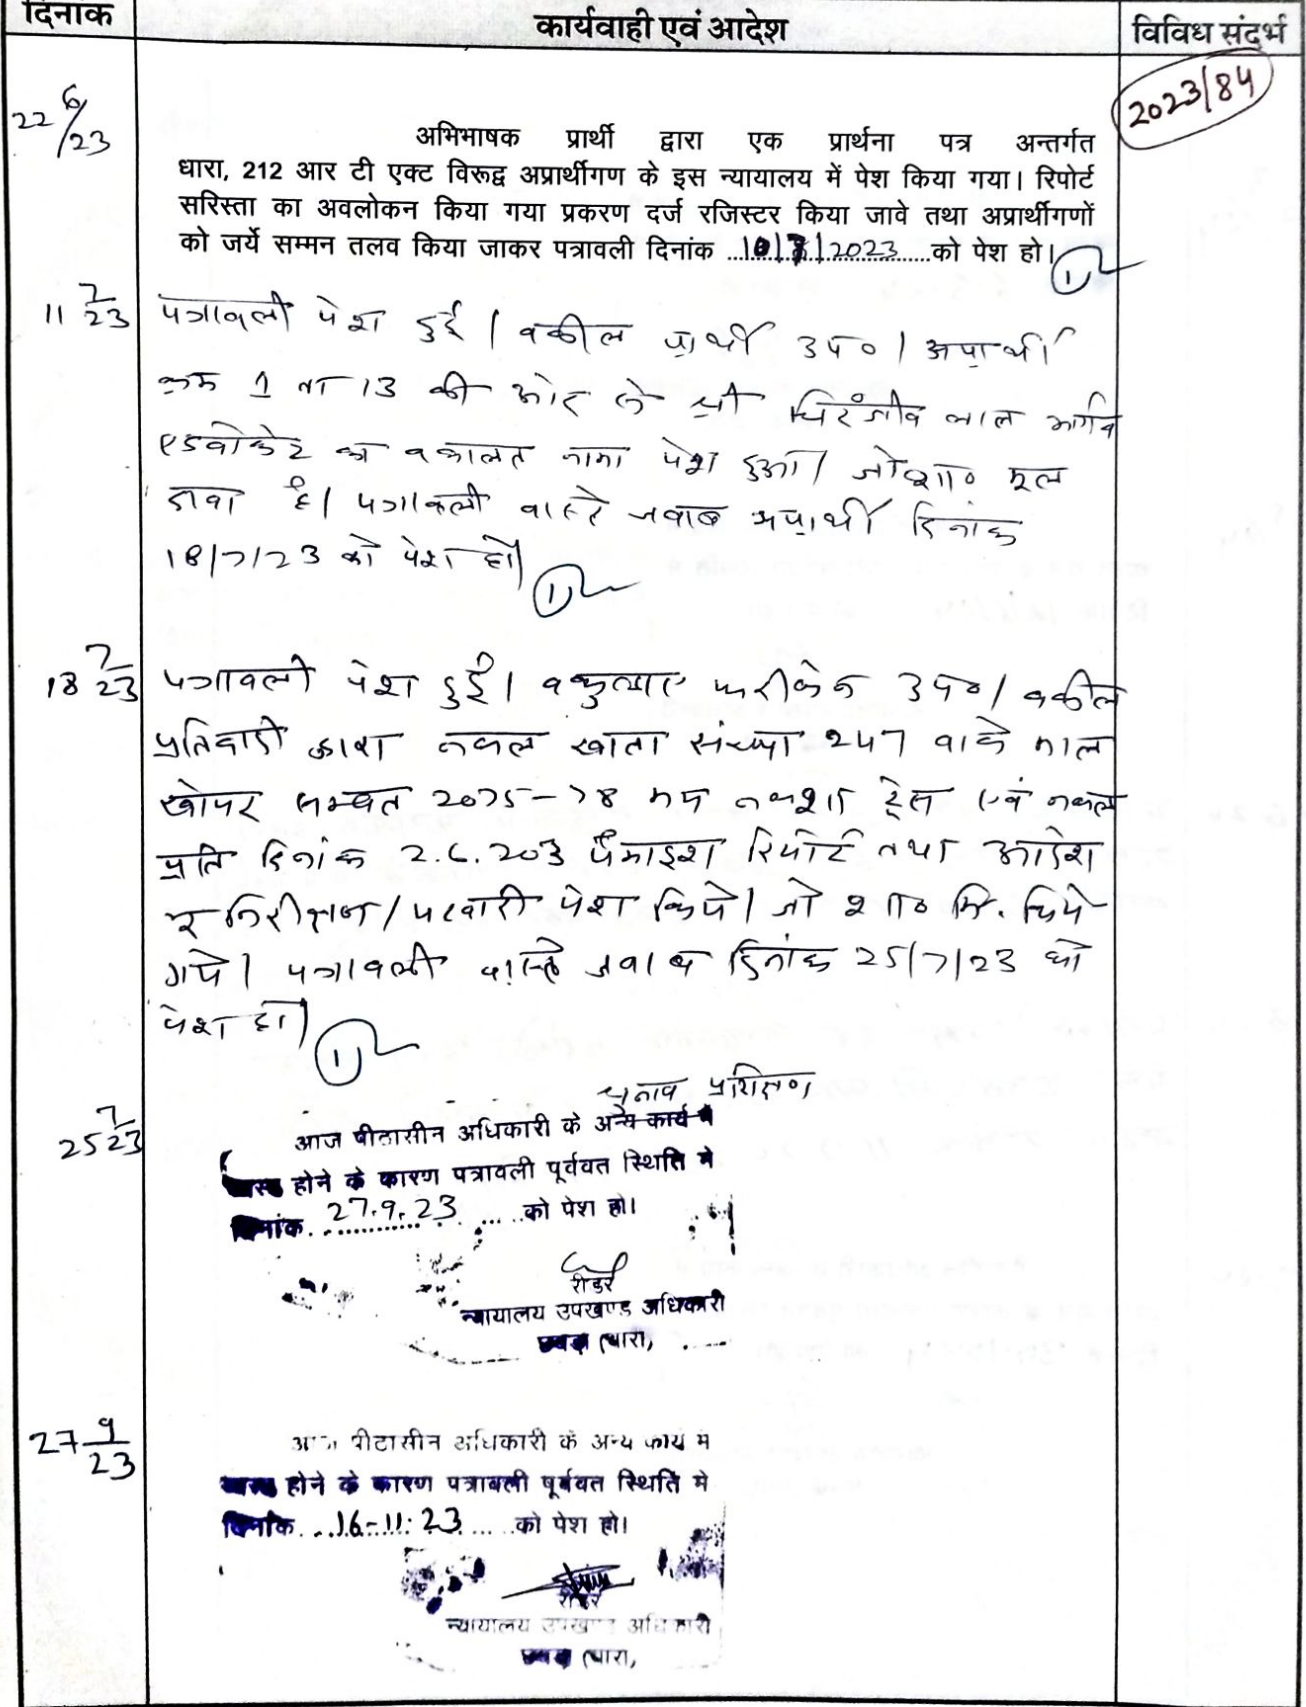 दिनांक
कार्यवाही एवं आदेश
विविध संदर्भ
2023/84
22 6/23
अभिभाषक प्रार्थी द्वारा एक प्रार्थना पत्र अन्तर्गत
धारा, 212 आर टी एक्ट विरूद्व अप्रार्थीगण के इस न्यायालय में पेश किया गया। रिपोर्ट
सरिस्ता का अवलोकन किया गया प्रकरण दर्ज रजिस्टर किया जावे तथा अप्रार्थीगणों
को जर्ये सम्मन तलव किया जाकर पत्रावली दिनांक ...../2023.....को पेश हो।
11 7/23
पत्रावली पेश हुई। वकील प्रार्थी उप०। अप्रार्थी
क्रम 1 ता 13 की ओर से श्री चिरंजीव लाल भार्गव
एडवोकेट का वकालत नामा पेश हुआ। जो शा० मूल
दावा है। पत्रावली वास्ते जवाब अप्रार्थी दिनांक
18/7/23 को पेश हो।
18 7/23
पत्रावली पेश हुई। वकुलाए फरीकेन उप०। वकील
प्रतिवादी द्वारा नकल खाता संख्या 247 वाके माल
खोपर सम्वत 2075-78 मय नक्शा ट्रेस एवं नकल
प्रति दिनांक 2.6.203 पैमाइश रिपोर्ट तथा आदेश
भू निरीक्षक/पटवारी पेश किये। जो शा० मि. किये
गये। पत्रावली वास्ते जवाब दिनांक 25/7/23 को
पेश हो।
25 7/23
चुनाव प्रशिक्षण
आज पीठासीन अधिकारी के अन्य कार्य मे
होने के कारण पत्रावली पूर्ववत स्थिति मे
दिनांक. 27.9.23 .....को पेश हो।
रीडर
न्यायालय उपखण्ड अधिकारी
27 9/23
आज पीठासीन अधिकारी के अन्य कार्य मे
होने के कारण पत्रावली पूर्ववत स्थिति मे
दिनांक. ..16-11-23.... ..को पेश हो।
रीडर
न्यायालय उपखण्ड अधिकारी